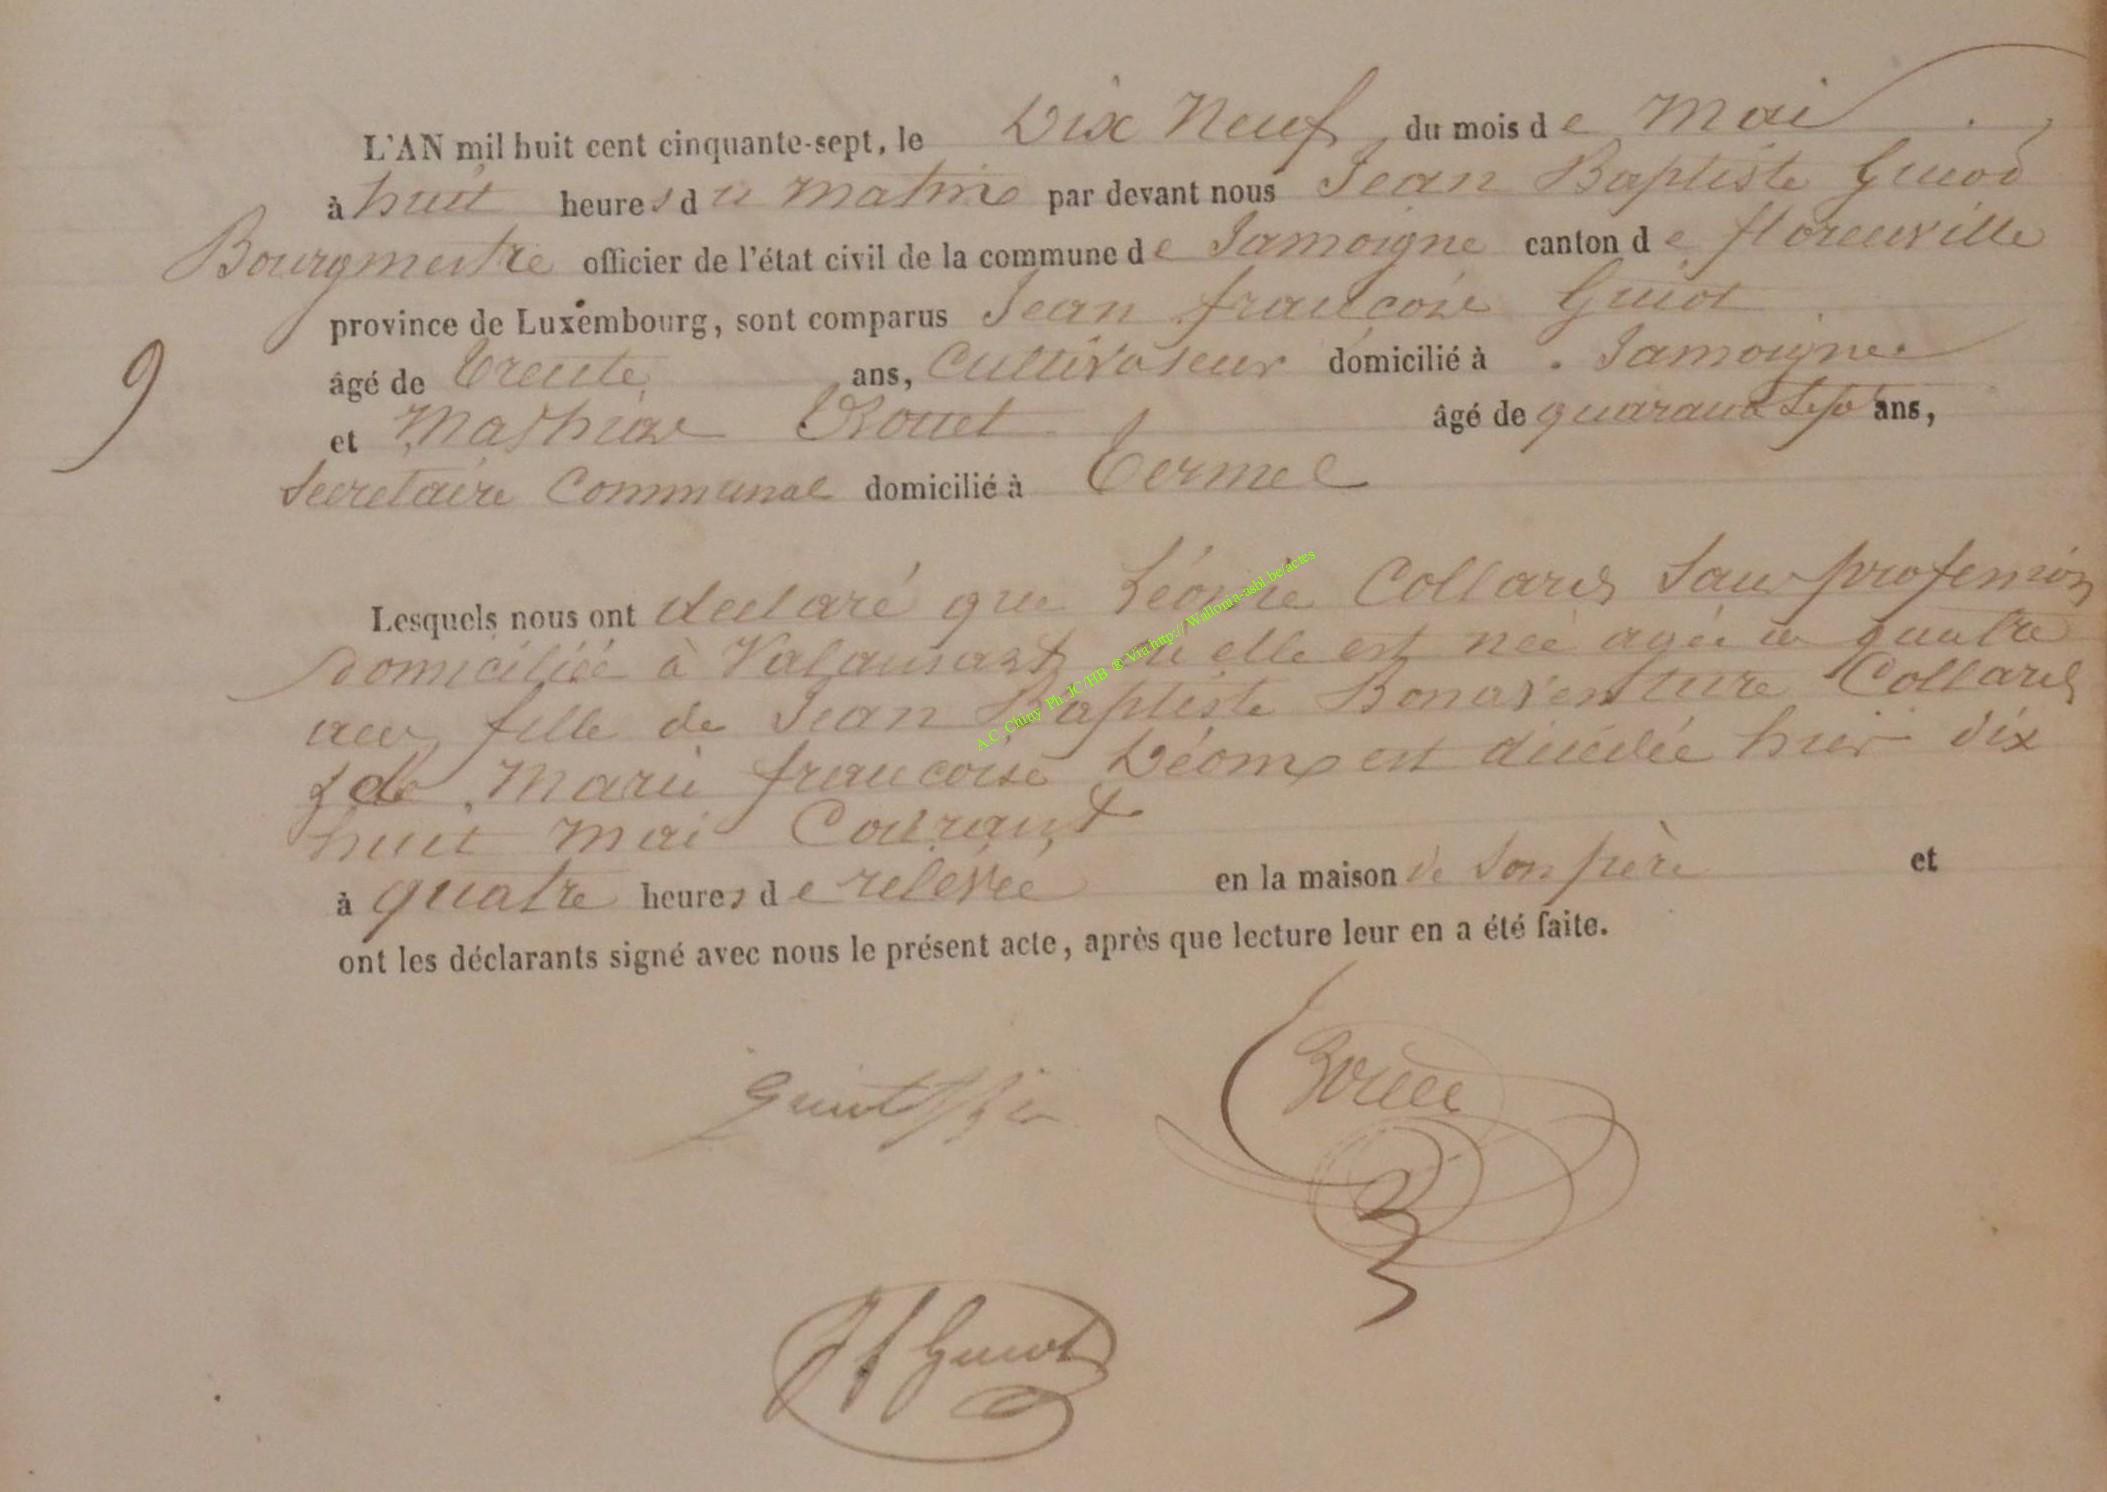 L'AN mil huit cent cinquante-sept, le Dix Neuf du mois de Mai
à huit heures du matin par devant nous Jean Baptiste Guiot
Bourgmestre officier de l'état civil de la commune de Jamoigne canton de florenville
province de Luxembourg, sont comparus Jean françois Guiot
âgé de trente ans, Cultivateur domicilié à Jamoigne
9
et Mathias Rouet âgé de quarante Sept ans,
Secretaire Communal domicilié à Termel
Lesquels nous ont declaré que Léonie Collard Sans profession
domiciliée à Valansart où elle est née agée de quatre
ans fille de Jean Baptiste Bonaventure Collard
& de Marie françoise Déom est décédée hier dix
huit mai Courant
à quatre heures de relevée en la maison de Son père et
ont les déclarants signé avec nous le présent acte, après que lecture leur en a été faite.
A.C. Chiny Ph JC/HB ® Via http://Wallonia-asbl.be/actes
Guiot
Jf Guiot